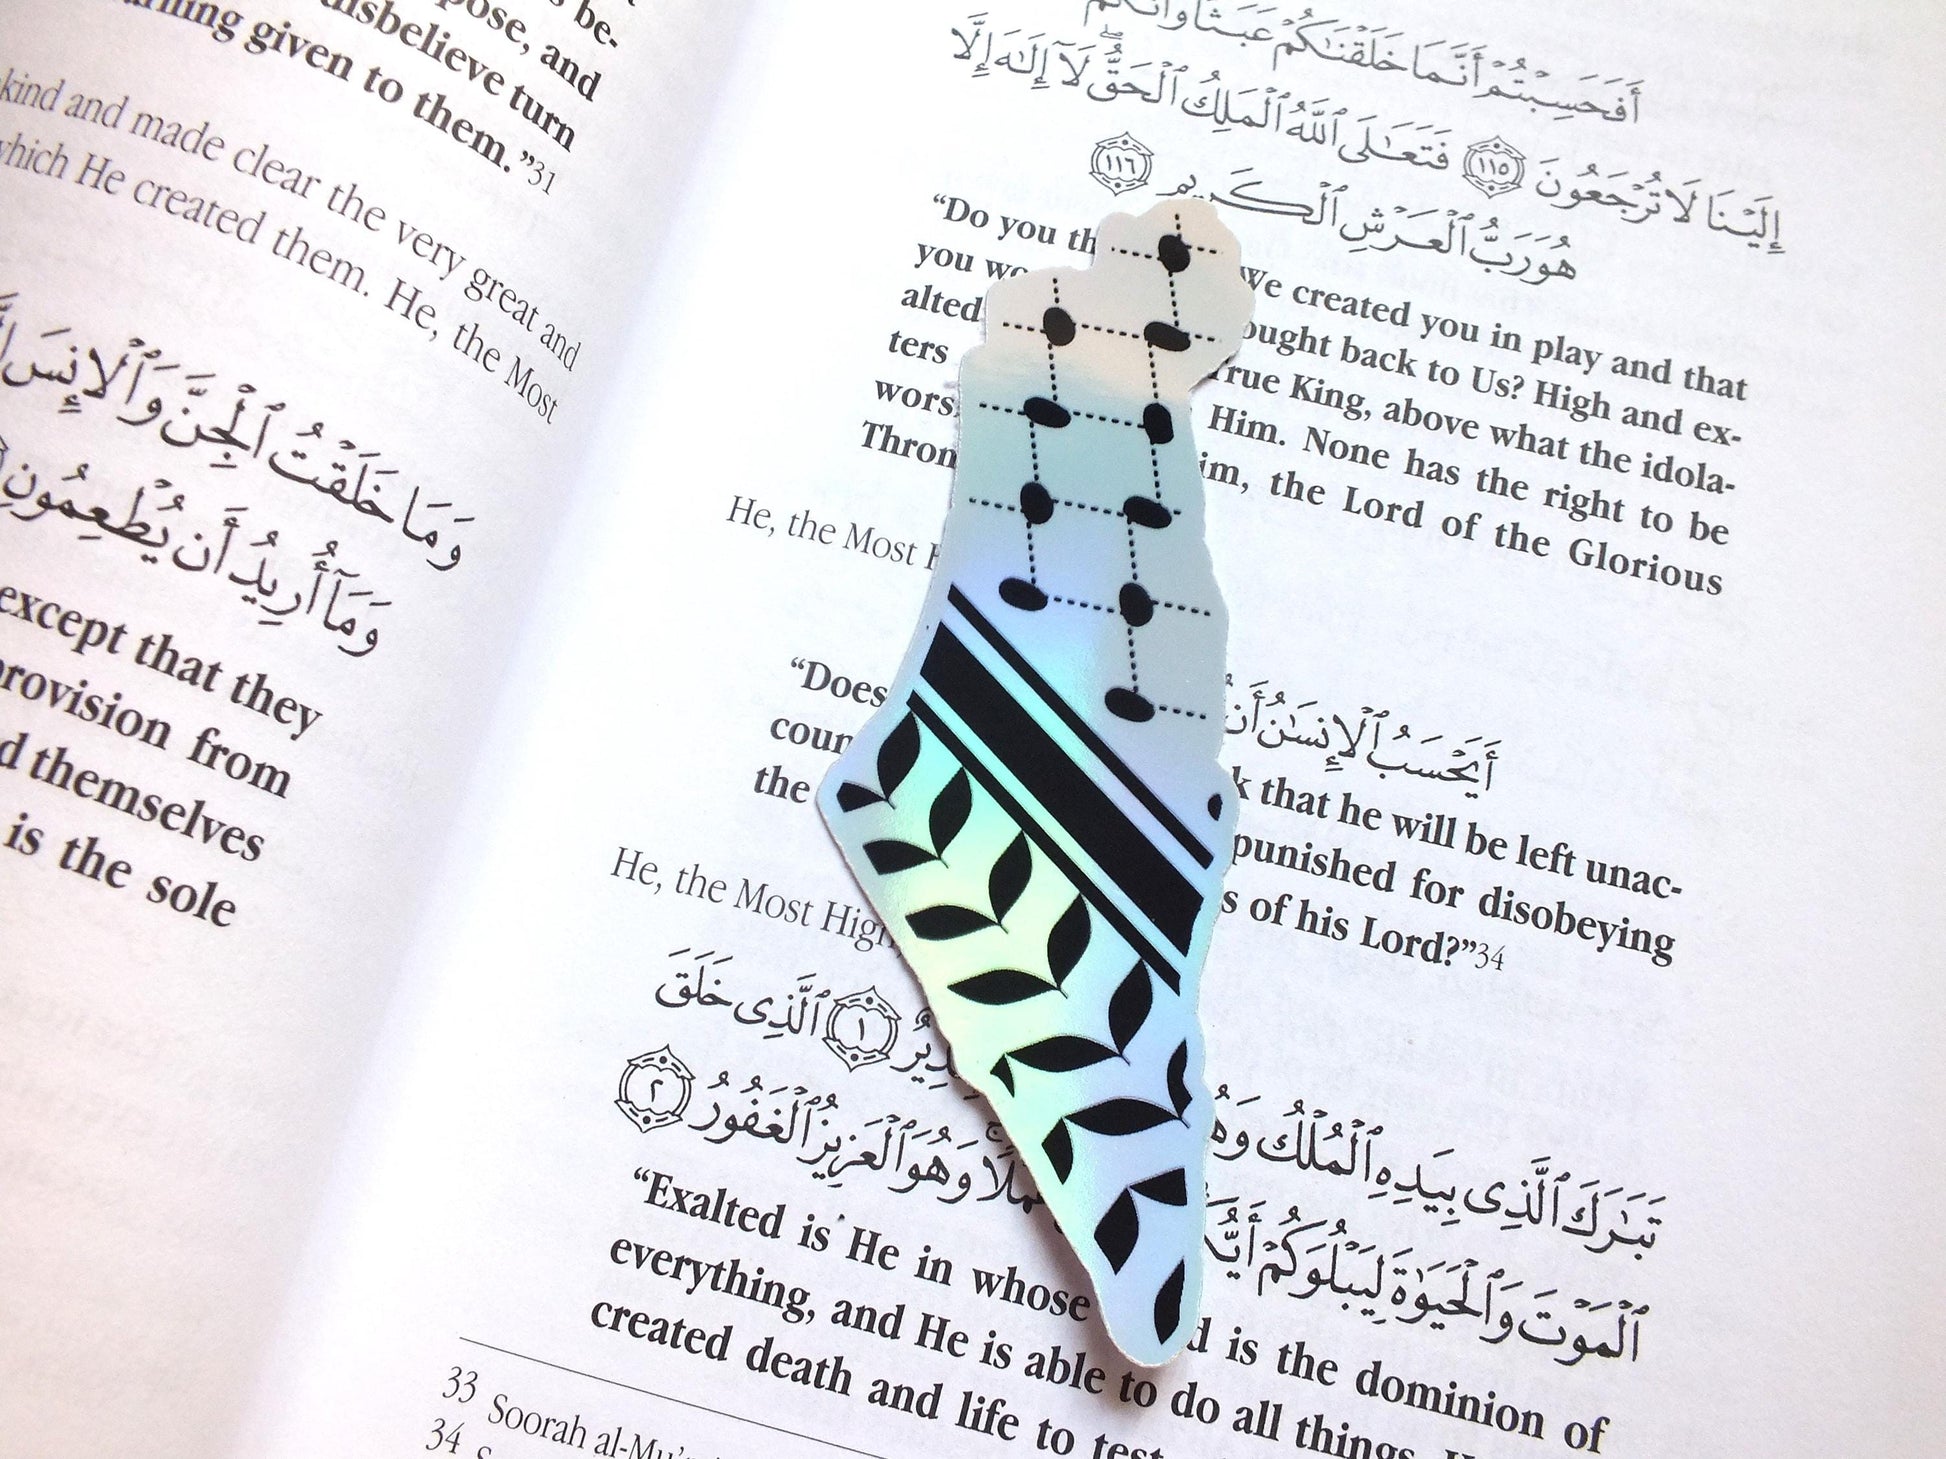 pose, and
disbelieve turn
given to them.”31
kind and made clear the very great and
which He created them. He, the Most
وَمَا خَلَقْتُ ٱلْجِنَّ وَٱلْإِنسَ
وَمَآ أُرِيدُ أَن يُطْعِمُونِ
except that they
provision from
themselves
is the sole
أَفَحَسِبْتُمْ أَنَّمَا خَلَقْنَـٰكُمْ عَبَثًا وَأَنَّكُمْ
إِلَيْنَا لَا تُرْجَعُونَ ١١٥ فَتَعَـٰلَى ٱللَّهُ ٱلْمَلِكُ ٱلْحَقُّ ۖ لَآ إِلَـٰهَ إِلَّا
هُوَ رَبُّ ٱلْعَرْشِ ٱلْكَرِيمِ ١١٦
“Do you We created you in play and that
you ought back to Us? High and ex-
alted True King, above what the idola-
ters Him. None has the right to be
wors im, the Lord of the Glorious
Thron
He, the Most
أَيَحْسَبُ ٱلْإِنسَـٰنُ أَن
“Does that he will be left unac-
coun punished for disobeying
the of his Lord?”34
He, the Most High
تَبَـٰرَكَ ٱلَّذِى بِيَدِهِ ٱلْمُلْكُ وَهُ ١ ٱلَّذِى خَلَقَ
ٱلْمَوْتَ وَٱلْحَيَوٰةَ لِيَبْلُوَكُمْ وَهُوَ ٱلْعَزِيزُ ٱلْغَفُورُ ٢
“Exalted is He in whose is the dominion of
everything, and He is able to do all things.
created death and life to test
33 Soorah al-Mu
34